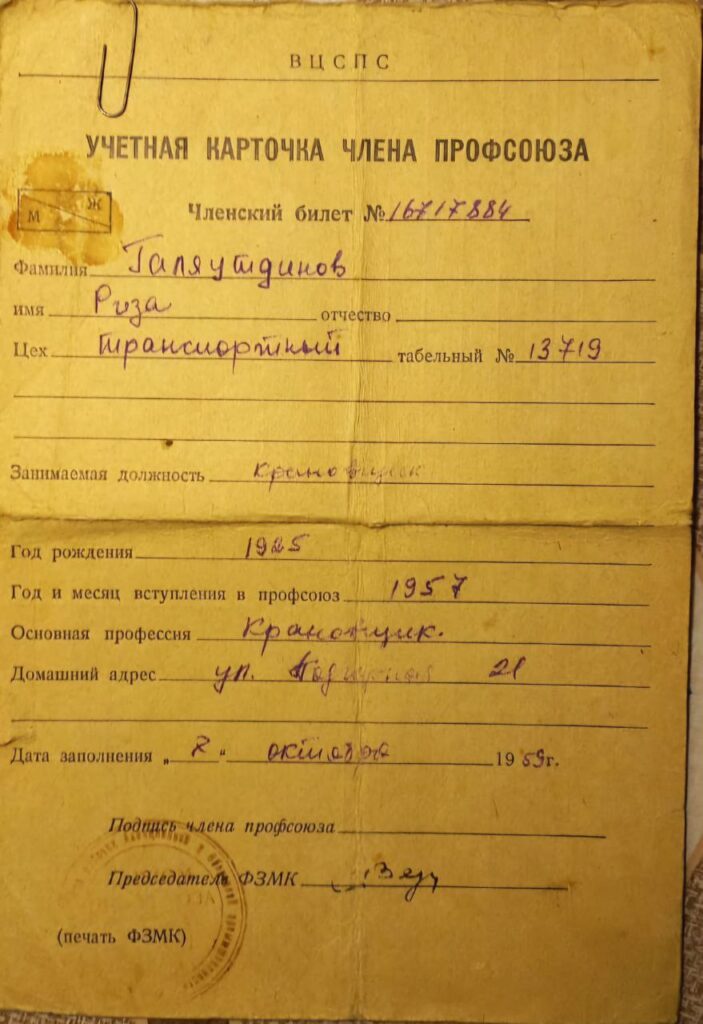 ВЦСПС
УЧЕТНАЯ КАРТОЧКА ЧЛЕНА ПРОФСОЮЗА
М Ж
Членский билет № 16717884
Фамилия Галяутдинов
имя Риза отчество
Цех транспортный табельный № 13719
Занимаемая должность крановщик
Год рождения 1925
Год и месяц вступления в профсоюз 1957
Основная профессия Крановщик.
Домашний адрес ул. 21
Дата заполнения „ “ октября 1959г.
Подпись члена профсоюза
Председатель ФЗМК
(печать ФЗМК)